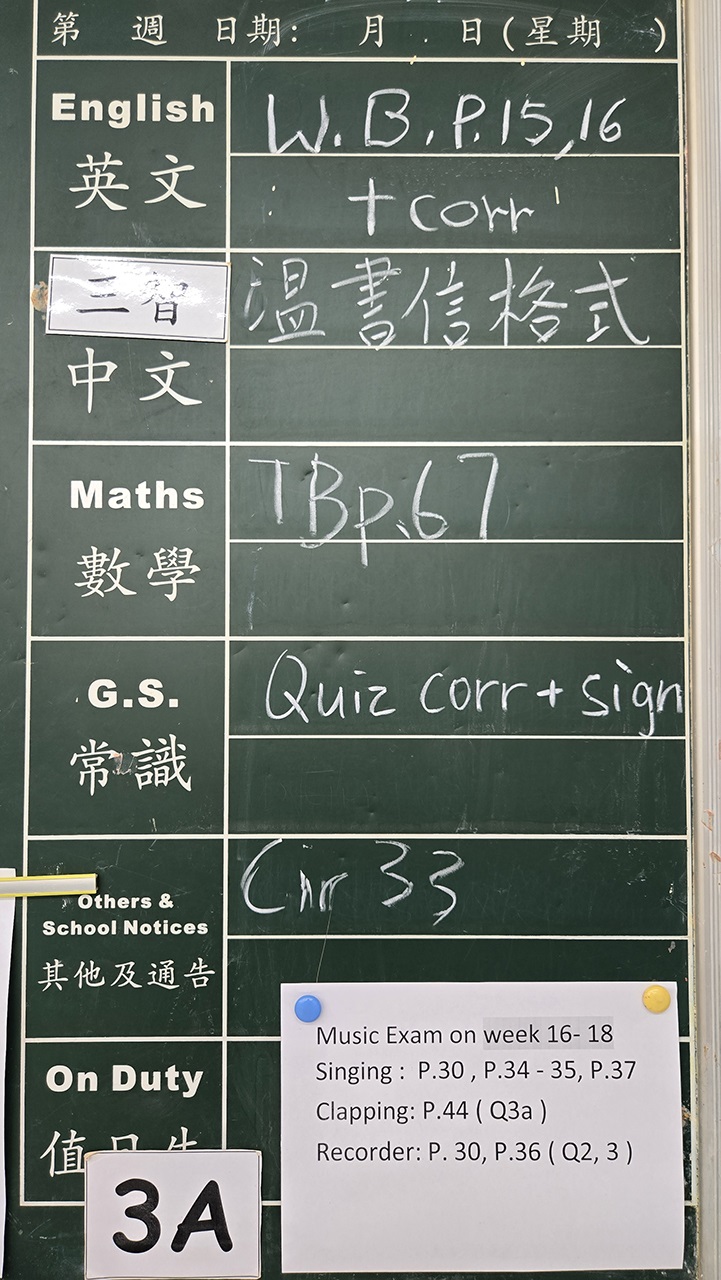 第 週 日期: 月 . 日(星期 )
English W.B.P.15,16
英文 +corr
三智 溫書信格式
中文
Maths TBp.67
數學
G.S. Quiz corr+sign
常識
Others & Cir 33
School Notices
其他及通告
On Duty
值日生
3A
Music Exam on week 16- 18
Singing : P.30 , P.34 - 35, P.37
Clapping: P.44 ( Q3a )
Recorder: P. 30, P.36 ( Q2, 3 )